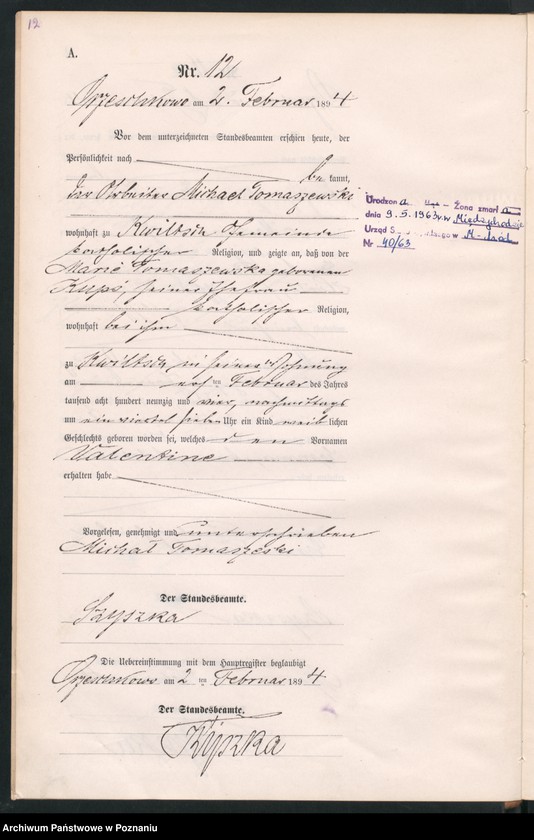 12
A.
Nr. 12
Orzeschkowo am 2. Februar 1894
Vor dem unterzeichneten Standesbeamten erschien heute, der
Persönlichkeit nach
be kannt,
der Arbeiter Michael Tomaszewski
wohnhaft zu Kwiltsch Gemeinde
katholischer Religion, und zeigte an, daß von der
Marie Tomaszewska geborenen
Kupś, seiner Ehefrau
katholischer Religion,
wohnhaft bei ihm
zu Kwiltsch in seiner Wohnung
am ersten Februar des Jahres
tausend acht hundert neunzig und vier, nachmittags
um ein viertel sieben Uhr ein Kind weib lichen
Geschlechts geboren worden sei, welches den Vornamen
Valentine
erhalten habe
Vorgelesen, genehmigt und unterschrieben
Michał Tomaszeski
Der Standesbeamte.
Szyszka
Die Uebereinstimmung mit dem Hauptregister beglaubigt
Orzeschkowo am 2 ten Februar 1894
Der Standesbeamte.
Szyszka
Urodzona Żona zmarła
dnia 9.5.1963 r. w Międzychodzie
Urząd w M-chód
Nr 40/63
Archiwum Państwowe w Poznaniu